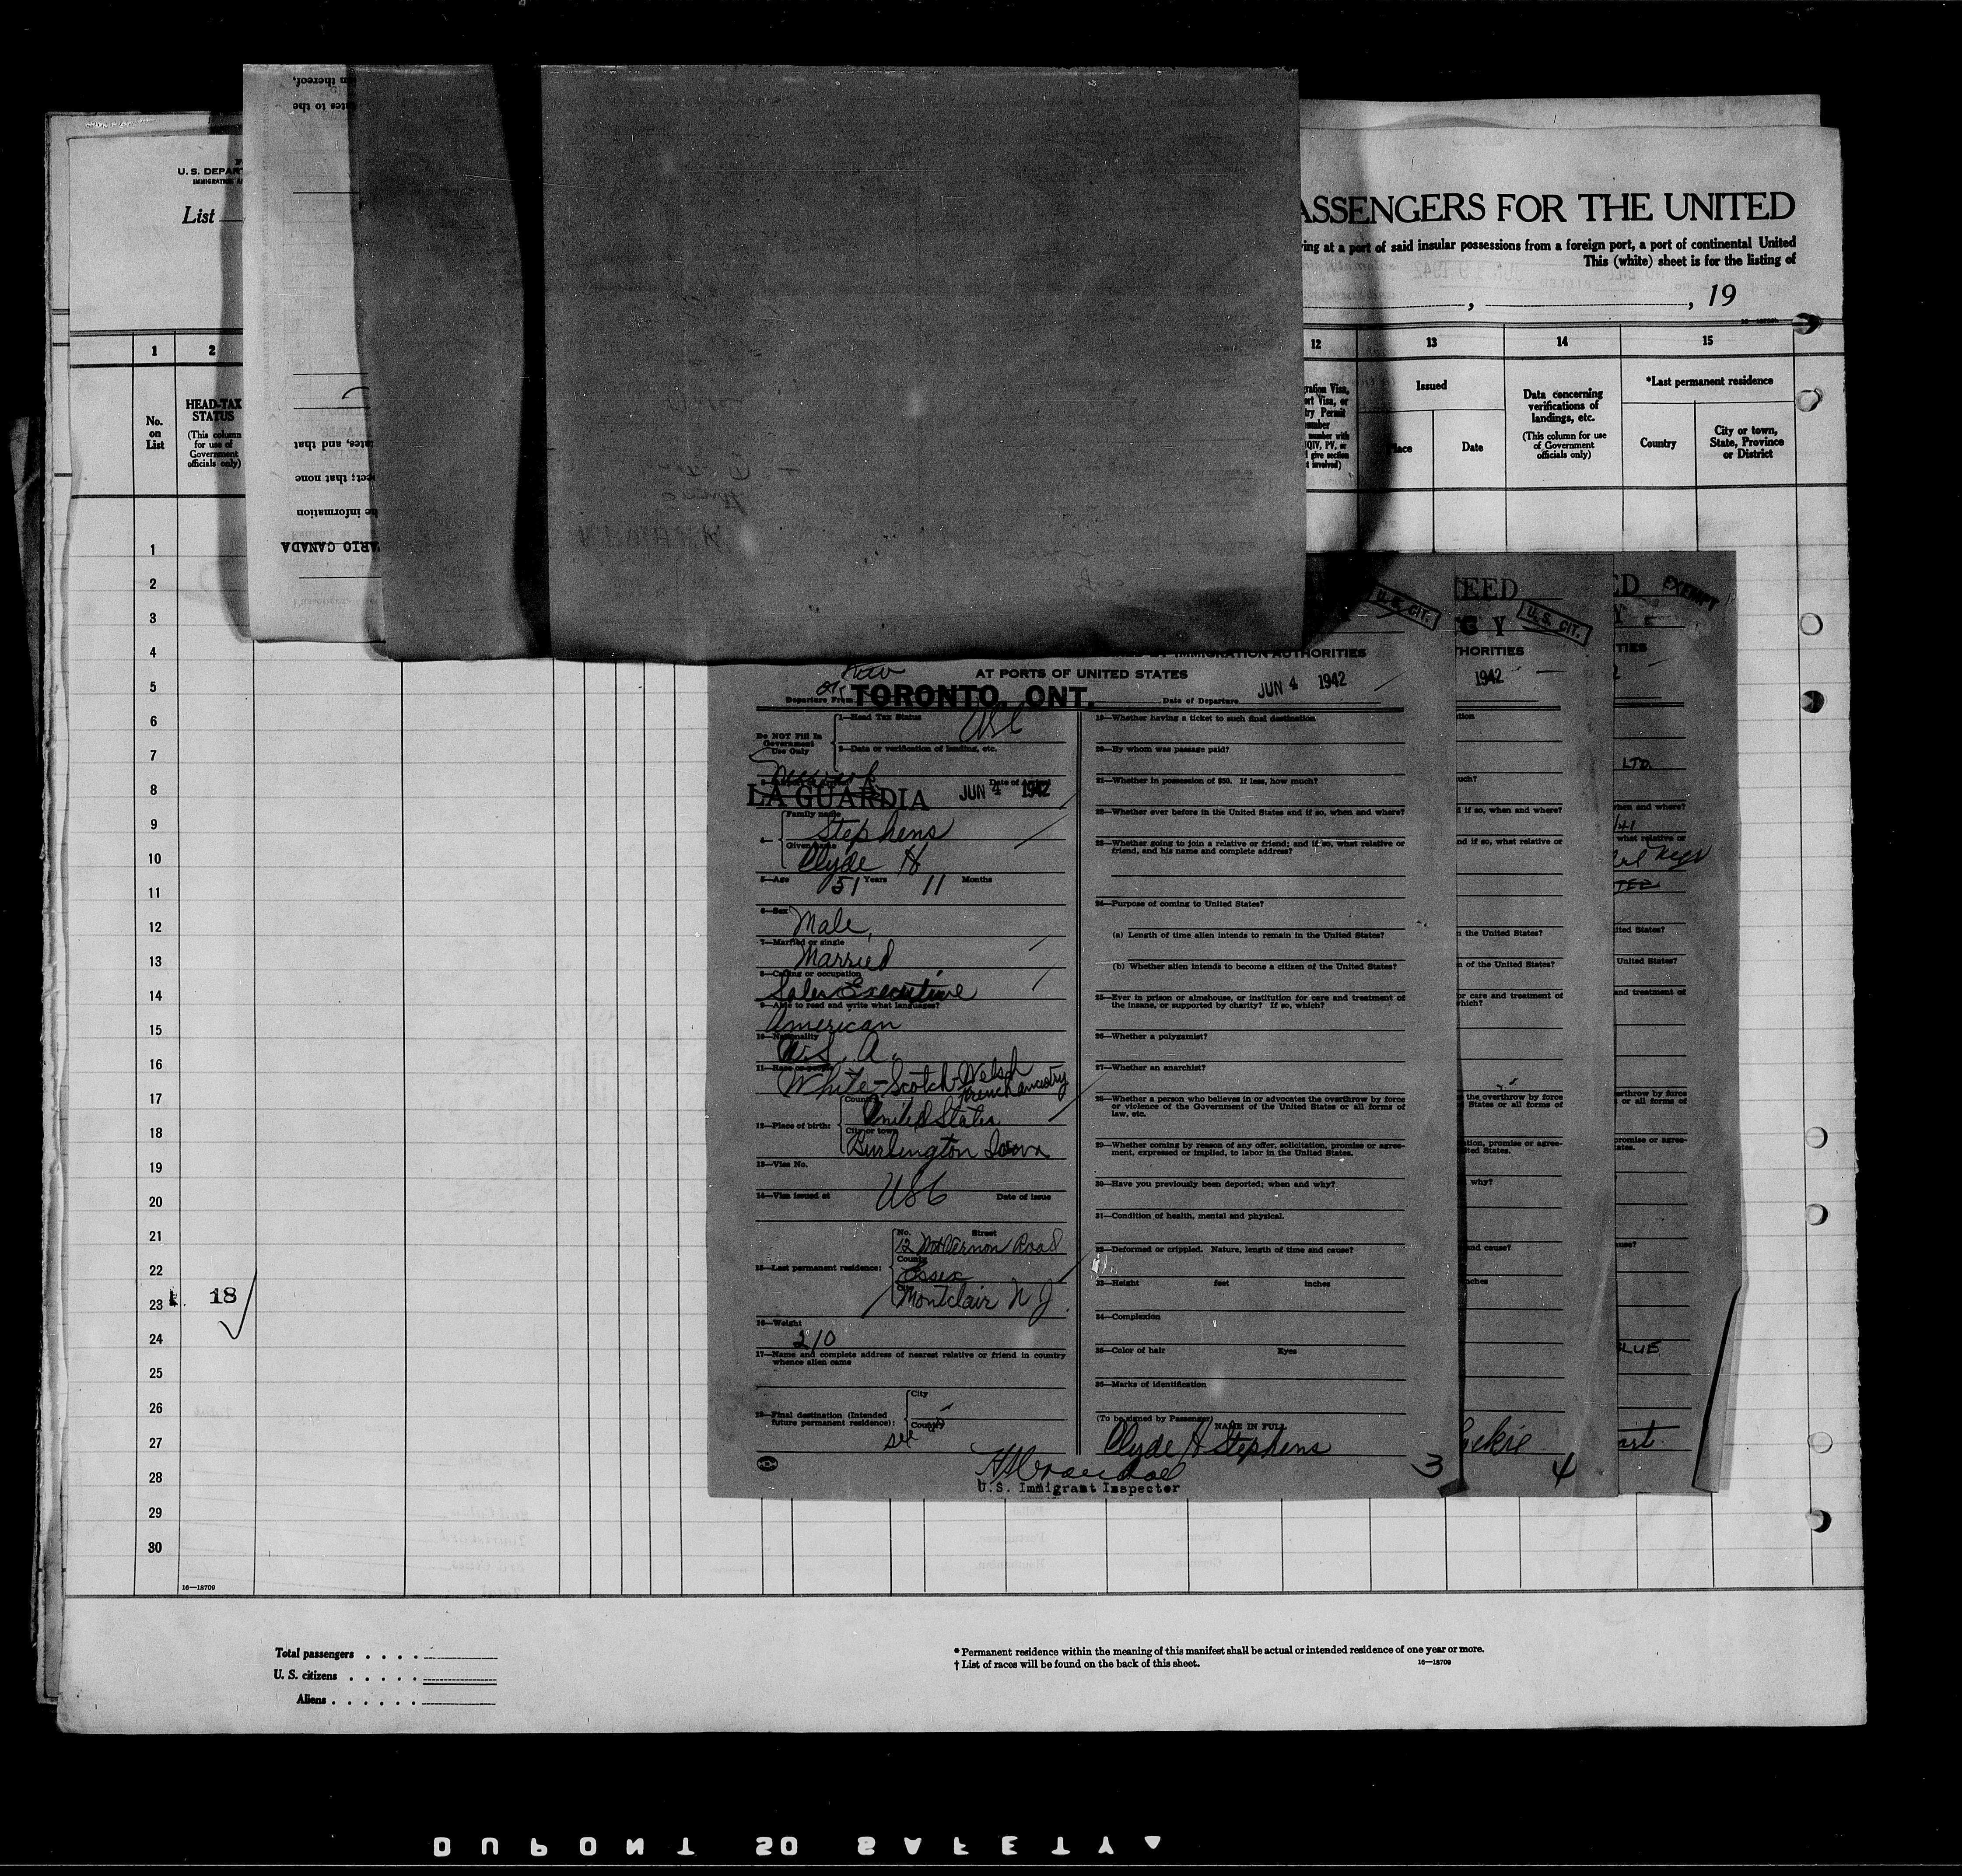 U. S. DEPAR
IMMIGRATION A
List
thereof,
tes to the
ates, and that
ect; that none
he information
ARIO CANADA
ASSENGERS FOR THE UNITED
ing at a port of said insular possessions from a foreign port, a port of continental United
This (white) sheet is for the listing of
, , 19
1 2
No. on List
HEAD-TAX STATUS
(This column for use of Government officials only)
12 13 14 15
ration Visa,
ort Visa, or
try Permit
umber
number with
QIV, PV, or
give section
involved)
Issued
lace
Date
Data concerning verifications of landings, etc.
(This column for use of Government officials only)
*Last permanent residence
Country
City or town, State, Province or District
1
2
3
4
5
6
7
8
9
10
11
12
13
14
15
16
17
18
19
20
21
22
23 18
24
25
26
27
28
29
30
16—18709
U.S. CIT.
BY IMMIGRATION AUTHORITIES
AT PORTS OF UNITED STATES
Departure From TORONTO, ONT.
Date of Departure JUN 4 1942
Do NOT Fill In
Government
Use Only
1—Head Tax Status USC
2—Date or verification of landing, etc.
Newark
LA GUARDIA
Date of Arrival
JUN 4 1942
4—
Family name
Stephens
Given name
Clyde H
5—Age 51 Years 11 Months
6—Sex
Male
7—Married or single
Married
8—Calling or occupation
Sales Executive
9—Able to read and write what languages?
American
10—Nationality
U.S.A.
11—Race or people
White-Scotch-Welsh
French ancestry
12—Place of birth:
Country
United States
City or town
Burlington Iowa
13—Visa No.
14—Visa issued at USC Date of issue
15—Last permanent residence:
No. Street
12 Mt Vernon Road
County
Essex
Montclair N J.
16—Weight
210
17—Name and complete address of nearest relative or friend in country
whence alien came
18—Final destination (Intended
future permanent residence):
City
County
see
19—Whether having a ticket to such final destination
20—By whom was passage paid?
21—Whether in possession of $50. If less, how much?
22—Whether ever before in the United States and if so, when and where?
23—Whether going to join a relative or friend; and if so, what relative or
friend, and his name and complete address?
24—Purpose of coming to United States?
(a) Length of time alien intends to remain in the United States?
(b) Whether alien intends to become a citizen of the United States?
25—Ever in prison or almshouse, or institution for care and treatment of
the insane, or supported by charity? If so, which?
26—Whether a polygamist?
27—Whether an anarchist?
28—Whether a person who believes in or advocates the overthrow by force
or violence of the Government of the United States or all forms of
law, etc.
29—Whether coming by reason of any offer, solicitation, promise or agree-
ment, expressed or implied, to labor in the United States.
30—Have you previously been deported; when and why?
31—Condition of health, mental and physical.
32—Deformed or crippled. Nature, length of time and cause?
33—Height feet inches
34—Complexion
35—Color of hair Eyes
36—Marks of identification
(To be signed by Passenger)
NAME IN FULL
Clyde H Stephens
3
U.S. Immigrant Inspector
EED
G Y
U. S. CIT.
THORITIES
1942
ation
uch?
if so, when and where?
nd if so, what relative or
n the United States?
n of the United States?
or care and treatment of
which?
the overthrow by force
States or all forms of
tion, promise or agree-
ited States.
why?
and cause?
nches
ekie
4
ED
Y
EXEMPT
TIES
2
LTD.
when and where?
/41
what relative or
ited States?
United States?
and treatment of
erthrow by force
or all forms of
promise or agree-
tates.
use?
BLUE
art
Total passengers
U. S. citizens
Aliens
* Permanent residence within the meaning of this manifest shall be actual or intended residence of one year or more.
† List of races will be found on the back of this sheet.
16—18709
DUPONT 20 SAFETY